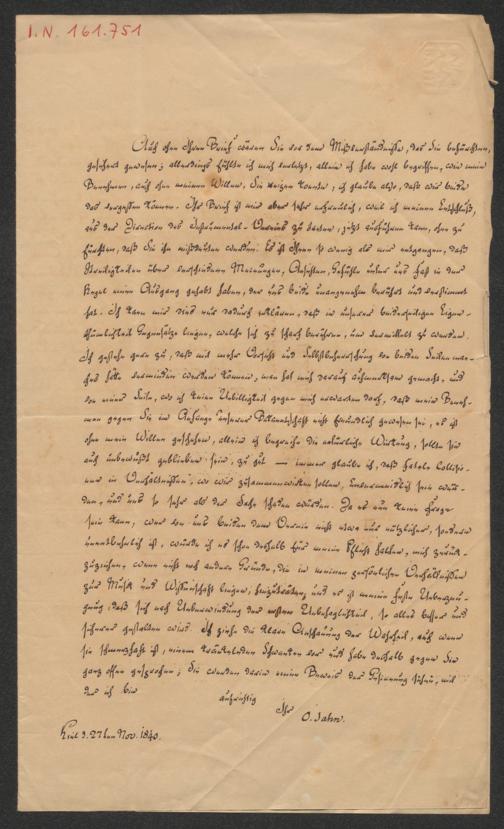 I.N. 161.751
Auch ohne Ihren Brief wären Sie vor dem Mißverständnisse, das Sie befürchten,
gesichert gewesen; allerdings fühlte ich mich verletzt, allein ich habe wohl begriffen, wie mein
Benehmen, auch ohne meinen Willen, Sie reizen konnte; ich glaube also, daß wir beide
das vergessen können. Ihr Brief ist mir aber sehr erfreulich, weil ich meinen Entschluß,
aus der Direction des Instrumental-Vereins zu treten, jetzt ausführen kann, ohne zu
fürchten, daß Sie ihn mißdeuten werden. Es ist Ihnen so wenig als mir entgangen, daß
Streitigkeiten über verschiedene Meinungen, Ansichten, Gefühle unter uns fast in der
Regel einen Ausgang gehabt haben, der uns beide unangenehm berührt und verstimmt
hat. Ich kann mir dies nur dadurch erklären, daß in unserer beiderseitigen Eigen-
thümlichkeit Gegensätze liegen, welche sich zu scharf berühren, um vermittelt zu werden.
Ich gestehe gern zu, daß mit mehr Vorsicht und Selbstbeherrschung von beiden Seiten man-
ches hätte vermieden werden können, man hat mich darauf aufmerksam gemacht, und
von einer Seite, wo ich keine Unbilligkeit gegen mich erwarten darf, daß mein Beneh-
men gegen Sie im Anfange unserer Bekanntschaft nicht freundlich gewesen sei, es ist
ohne mein Willen geschehen, allein ich begreife die natürliche Wirkung, sollte sie
auch unbewußt geblieben sein, zu gut — immer glaube ich, daß fatale Collisio-
nen in Verhältnissen, wo wir zusammenwirken sollen, unvermeidlich sein wür-
den, und uns so sehr als der Sache schaden würden. Da es nun keine Frage
sein kann, wer von uns beiden dem Verein nicht etwa nur nützlicher, sondern
unentbehrlich ist, würde ich es schon deshalb für meine Pflicht halten, mich zurück-
zuziehen, wenn nicht noch andere Gründe, die in meinen persönlichen Verhältnissen
zur Musik und Wissenschaft liegen, hinzuträten, und es ist meine feste Ueberzeu-
gung, daß sich nach Ueberwindung der ersten Unbehaglichkeit, so alles besser und
sicherer gestalten wird. Ich ziehe die klare Anschauung der Wahrheit, auch wenn
sie schmerzhaft ist, einem kränkelnden Schwanken vor und habe deshalb gegen Sie
ganz offen gesprochen; Sie werden darin einen Beweis der Gesinnung sehen, mit
der ich bin
aufrichtig
Ihr
O. Jahn.
Kiel d. 27ten Nov. 1840.